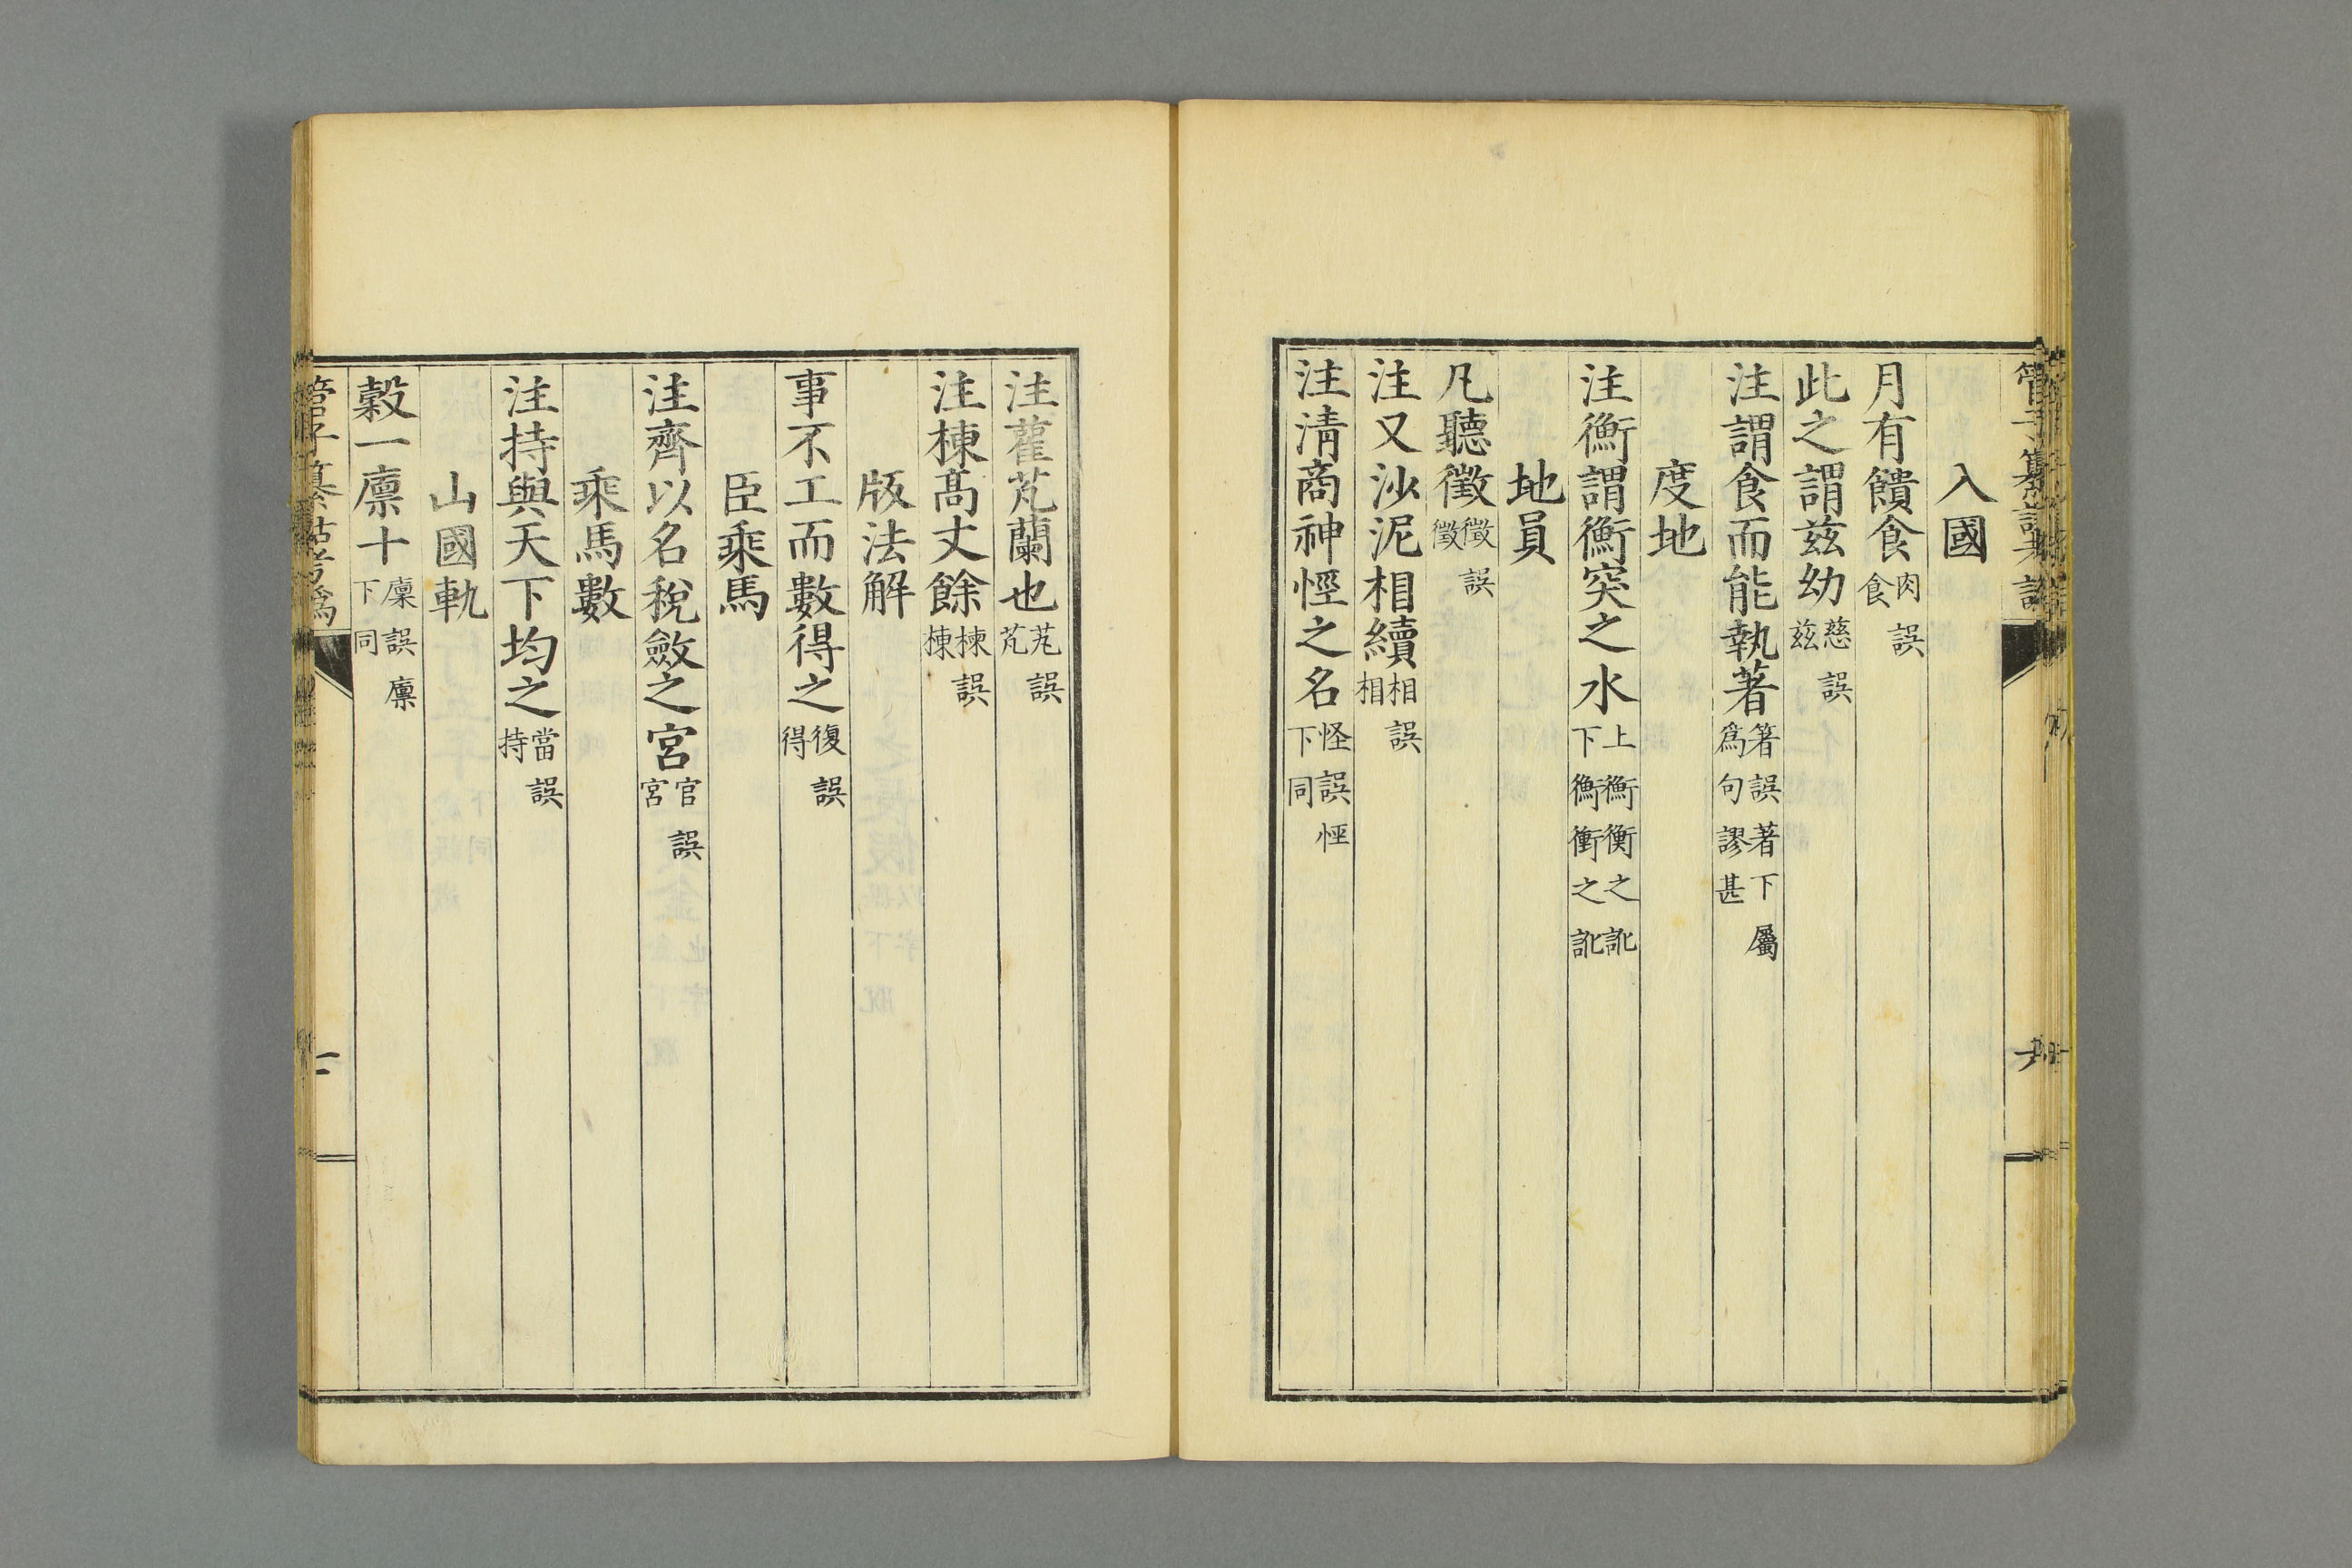 入國
月有饋食肉誤食
此之謂兹幼慈誤兹
注謂食而能執著箸誤著下屬爲句謬甚
度地
注衡謂衡突之水上衡衡之訛下衡衝之訛
地員
凡聽徵徵誤徵
注又沙泥相續相誤相
注清商神怪之名怪誤怪下同
注雚芄蘭也芄誤芄
注棟髙丈餘楝誤棟
版法解
事不工而數得之復誤得
臣乘馬
注齊以名稅斂之宮官誤宮
乘馬數
注持與天下均之當誤持
山國軌
穀一廪十廩誤廪下同